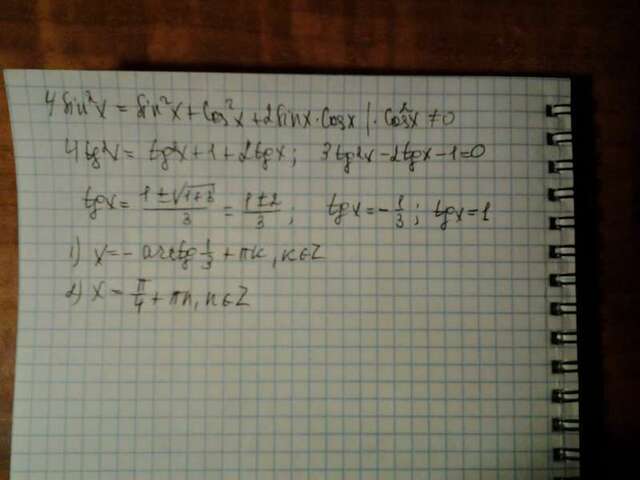 4 sin²x = sin²x + cos²x + 2 sinx · cosx |· cos²x ≠ 0
4 tg²x = tg²x + 1 + 2tgx; 3tg²x - 2tgx - 1 = 0
tgx = (1 ± √(1+3))/3 = (1 ± 2)/3; tgx = -1/3; tgx = 1
1) x = - arctg 1/3 + πk, k∈Z
2) x = π/4 + πn, n∈Z